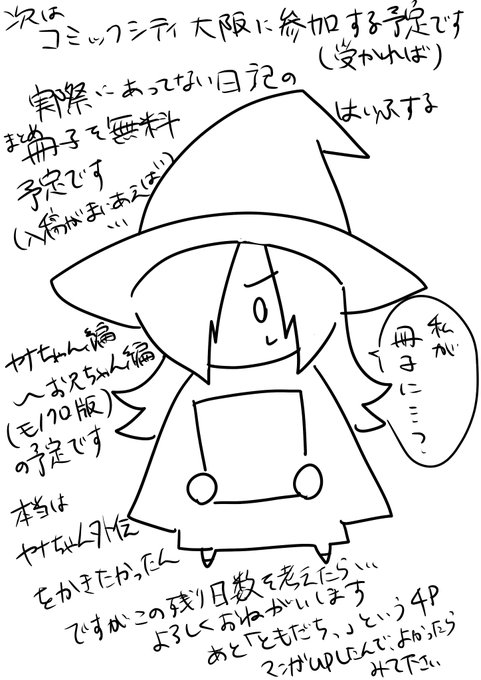 次は
コミックシティ大阪に参加する予定です
(受かれば)
実際にあってない日記の
まとめ
冊子を無料
はいふする
予定です
(入稿がまにあえば…)
私が
冊子に…?
ヤナちゃん編
～お兄ちゃん編
(モノクロ版)
の予定です
本当は
ヤナちゃん外伝
をかきたかったん
ですがこの残り日数を考えたら…
よろしくおねがいします
あと「ともだち、、」という4P
マンガUPしたんで、よかったら
みて下さい